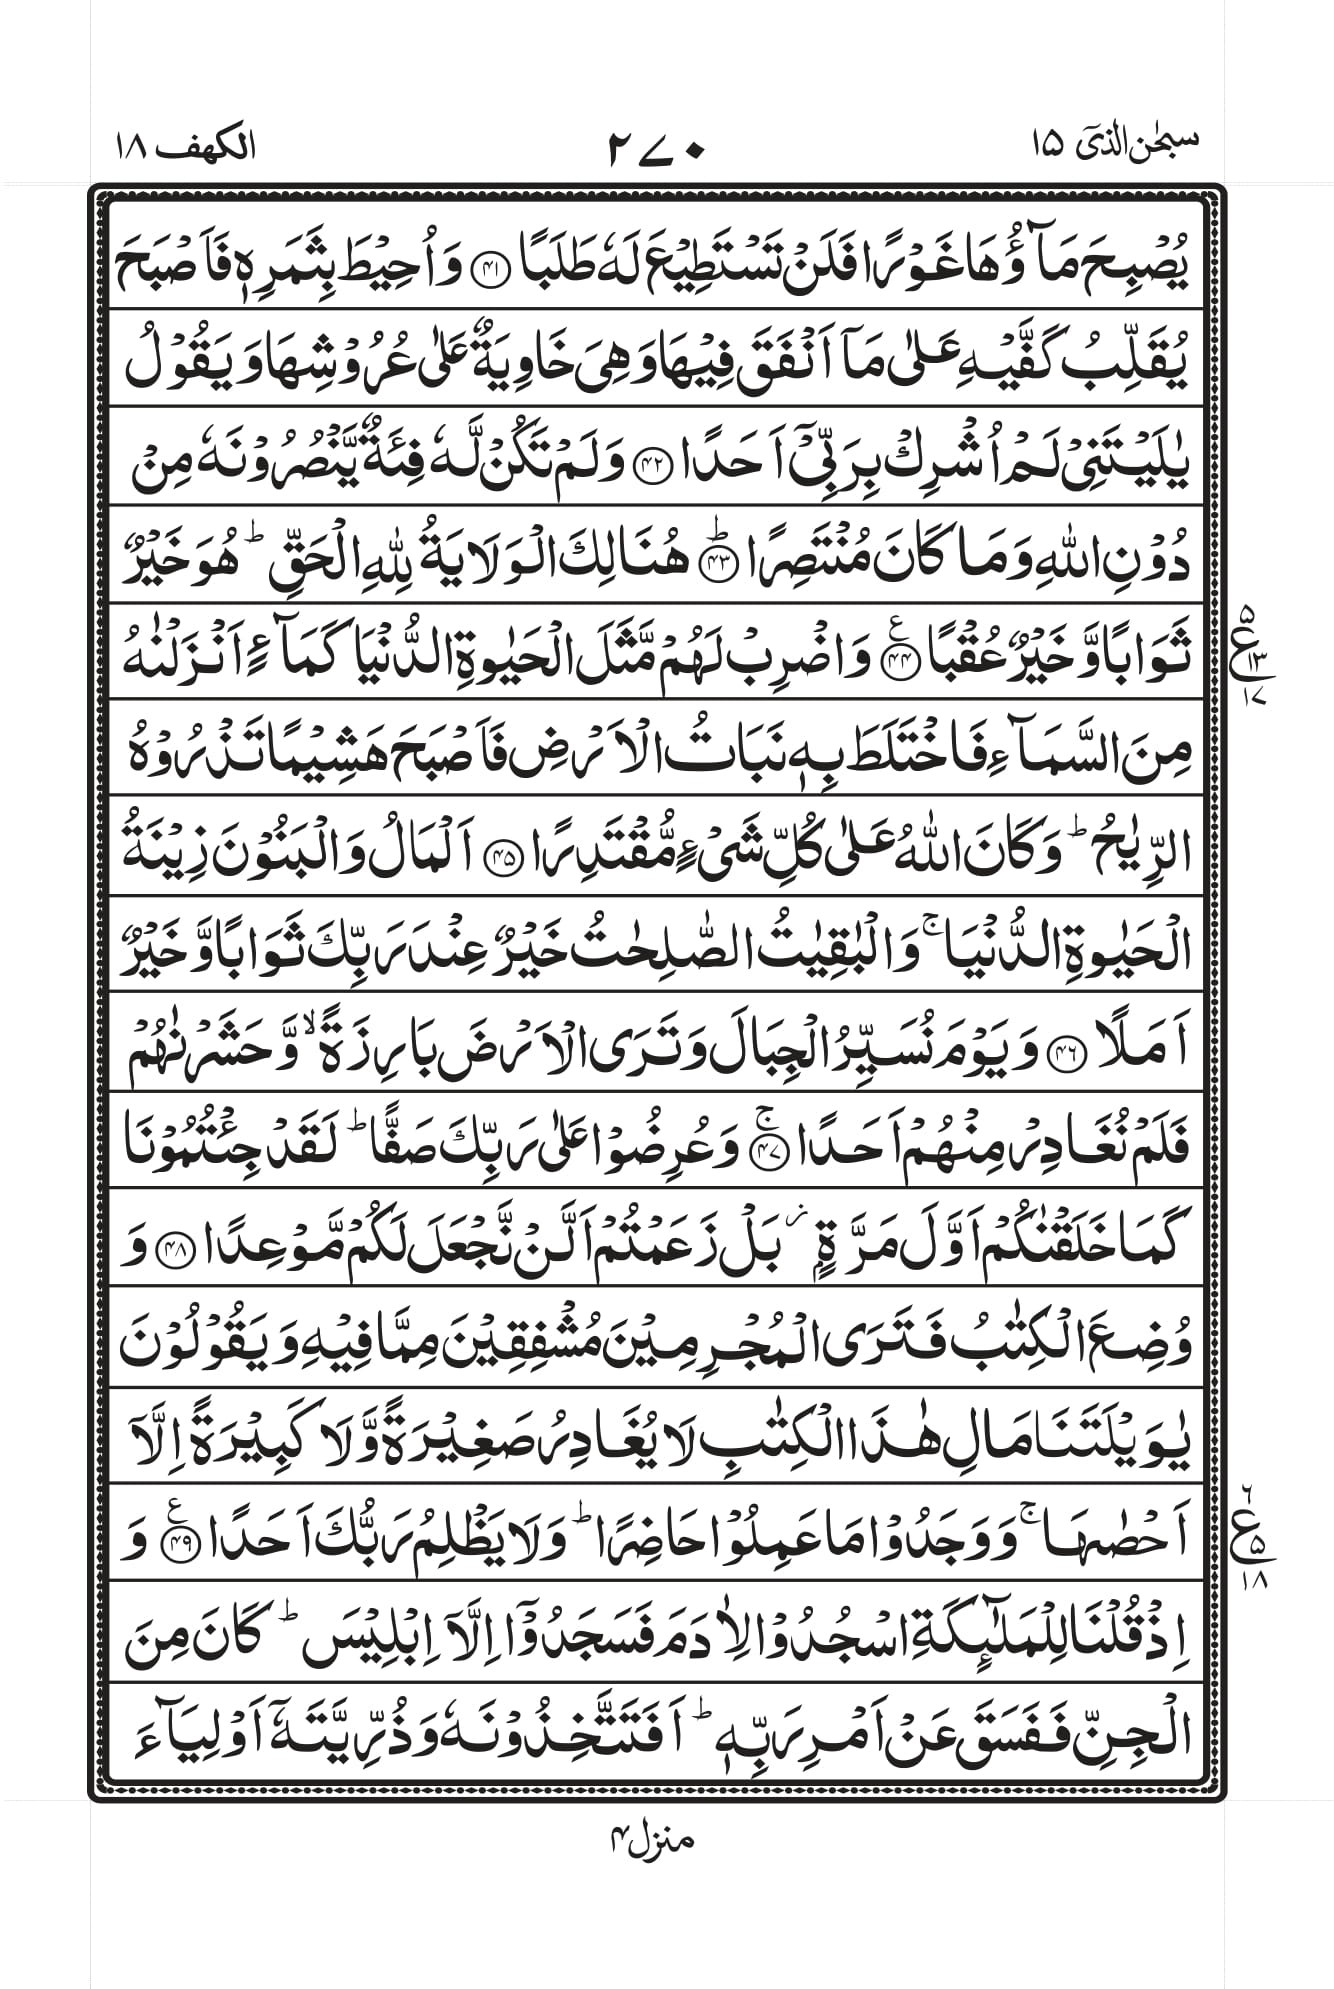 سبحٰن الذیٓ ۱۵ ۲۷۰ الکھف ۱۸
يُصْبِحَ مَآؤُهَا غَوْرًا فَلَنْ تَسْتَطِيْعَ لَهٗ طَلَبًا ﴿۴۱﴾ وَاُحِيْطَ بِثَمَرِهٖ فَاَصْبَحَ
يُقَلِّبُ كَفَّيْهِ عَلٰى مَاۤ اَنْفَقَ فِيْهَا وَهِىَ خَاوِيَةٌ عَلٰى عُرُوْشِهَا وَيَقُوْلُ
يٰلَيْتَنِىْ لَمْ اُشْرِكْ بِرَبِّىْۤ اَحَدًا ﴿۴۲﴾ وَلَمْ تَكُنْ لَّهٗ فِئَةٌ يَّنْصُرُوْنَهٗ مِنْ
دُوْنِ اللّٰهِ وَمَا كَانَ مُنْتَصِرًا ؕ ﴿۴۳﴾ هُنَالِكَ الْوَلَايَةُ لِلّٰهِ الْحَقِّ ؕ هُوَ خَيْرٌ
ثَوَابًا وَّخَيْرٌ عُقْبًا ﴿۴۴﴾ ع وَاضْرِبْ لَهُمْ مَّثَلَ الْحَيٰوةِ الدُّنْيَا كَمَآءٍ اَنْزَلْنٰهُ
۵ ع ۱۳ ۱۷
مِنَ السَّمَآءِ فَاخْتَلَطَ بِهٖ نَبَاتُ الْاَرْضِ فَاَصْبَحَ هَشِيْمًا تَذْرُوْهُ
الرِّيٰحُ ؕ وَكَانَ اللّٰهُ عَلٰى كُلِّ شَىْءٍ مُّقْتَدِرًا ﴿۴۵﴾ اَلْمَالُ وَالْبَنُوْنَ زِيْنَةُ
الْحَيٰوةِ الدُّنْيَا ۚ وَالْبٰقِيٰتُ الصّٰلِحٰتُ خَيْرٌ عِنْدَ رَبِّكَ ثَوَابًا وَّخَيْرٌ
اَمَلًا ﴿۴۶﴾ وَيَوْمَ نُسَيِّرُ الْجِبَالَ وَتَرَى الْاَرْضَ بَارِزَةً ۙ وَّحَشَرْنٰهُمْ
فَلَمْ نُغَادِرْ مِنْهُمْ اَحَدًا ۚ ﴿۴۷﴾ وَعُرِضُوْا عَلٰى رَبِّكَ صَفًّا ؕ لَقَدْ جِئْتُمُوْنَا
كَمَا خَلَقْنٰكُمْ اَوَّلَ مَرَّةٍۢ ز بَلْ زَعَمْتُمْ اَلَّنْ نَّجْعَلَ لَكُمْ مَّوْعِدًا ﴿۴۸﴾ وَ
وُضِعَ الْكِتٰبُ فَتَرَى الْمُجْرِمِيْنَ مُشْفِقِيْنَ مِمَّا فِيْهِ وَيَقُوْلُوْنَ
يٰوَيْلَتَنَا مَالِ هٰذَا الْكِتٰبِ لَا يُغَادِرُ صَغِيْرَةً وَّلَا كَبِيْرَةً اِلَّاۤ
اَحْصٰٮهَا ۚ وَوَجَدُوْا مَا عَمِلُوْا حَاضِرًا ؕ وَلَا يَظْلِمُ رَبُّكَ اَحَدًا ﴿۴۹﴾ ع وَ
۶ ع ۵ ۱۸
اِذْ قُلْنَا لِلْمَلٰٓئِكَةِ اسْجُدُوْا لِاٰدَمَ فَسَجَدُوْۤا اِلَّاۤ اِبْلِيْسَ ؕ كَانَ مِنَ
الْجِنِّ فَفَسَقَ عَنْ اَمْرِ رَبِّهٖ ؕ اَفَتَتَّخِذُوْنَهٗ وَذُرِّيَّتَهٗۤ اَوْلِيَآءَ
منزل ۴